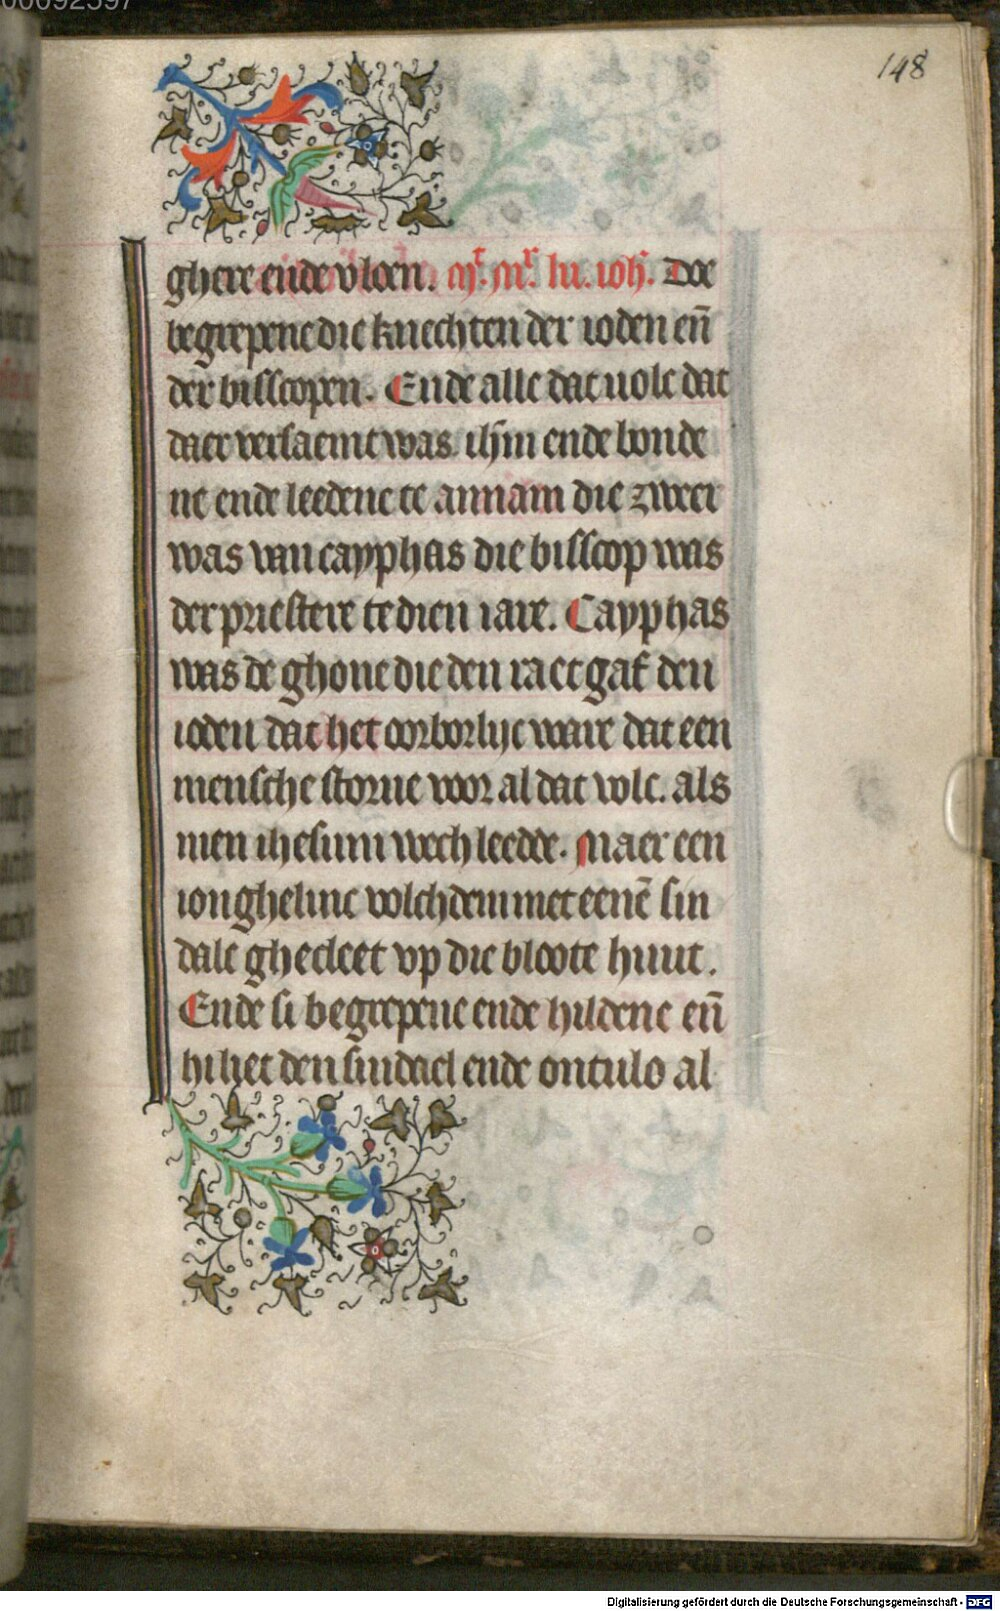 148
ghere ende vloen. mt. mr. lu. ioh. Doe
begrepene die knechten der ioden en̄
der bisscopen. Ende alle dat uolc dat
daer versaemt was ihm̄ ende bonde
ne ende leedene te annam die zweer
was van cayphas die bisscop was
der priestere te dien iare. Cayphas
was de ghone die den raet gaf den
ioden dat het oorborlijc ware dat een
mensche storue voor al dat volc. als
men ihesum wech leedde. Maer een
ionghelinc volchdem met eenē sin
dale ghecleet vp die bloote huut.
Ende si begrepene ende hildene en̄
hi liet den sindael ende ontulo al
Digitalisierung gefördert durch die Deutsche Forschungsgemeinschaft - DFG